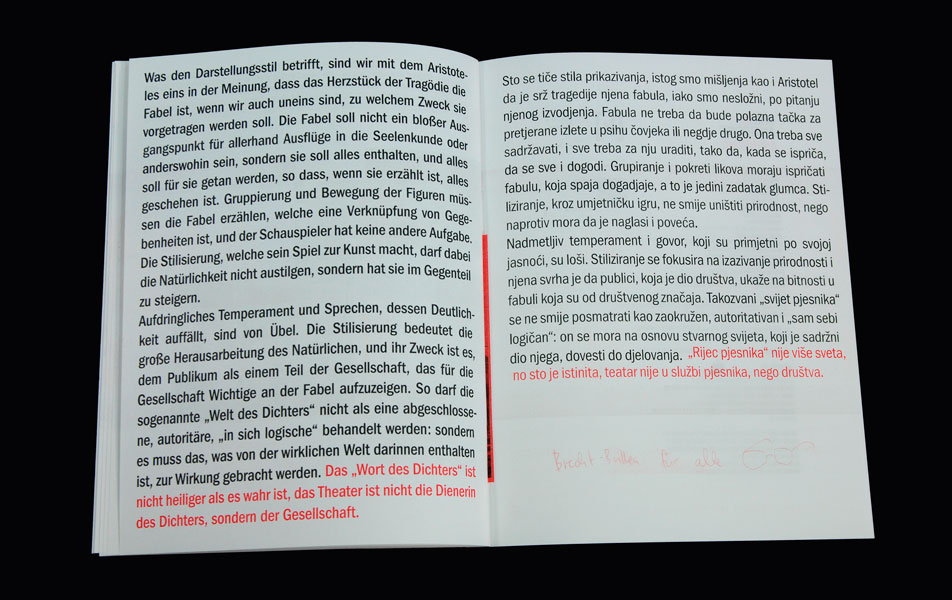 Was den Darstellungsstil betrifft, sind wir mit dem Aristote-
les eins in der Meinung, dass das Herzstück der Tragödie die
Fabel ist, wenn wir auch uneins sind, zu welchem Zweck sie
vorgetragen werden soll. Die Fabel soll nicht ein bloßer Aus-
gangspunkt für allerhand Ausflüge in die Seelenkunde oder
anderswohin sein, sondern sie soll alles enthalten, und alles
soll für sie getan werden, so dass, wenn sie erzählt ist, alles
geschehen ist. Gruppierung und Bewegung der Figuren müs-
sen die Fabel erzählen, welche eine Verknüpfung von Gege-
benheiten ist, und der Schauspieler hat keine andere Aufgabe.
Die Stilisierung, welche sein Spiel zur Kunst macht, darf dabei
die Natürlichkeit nicht austilgen, sondern hat sie im Gegenteil
zu steigern.
Aufdringliches Temperament und Sprechen, dessen Deutlich-
keit auffällt, sind von Übel. Die Stilisierung bedeutet die
große Herausarbeitung des Natürlichen, und ihr Zweck ist es,
dem Publikum als einem Teil der Gesellschaft, das für die
Gesellschaft Wichtige an der Fabel aufzuzeigen. So darf die
sogenannte „Welt des Dichters“ nicht als eine abgeschlosse-
ne, autoritäre, „in sich logische“ behandelt werden: sondern
es muss das, was von der wirklichen Welt darinnen enthalten
ist, zur Wirkung gebracht werden. Das „Wort des Dichters“ ist
nicht heiliger als es wahr ist, das Theater ist nicht die Dienerin
des Dichters, sondern der Gesellschaft.
Sto se tiče stila prikazivanja, istog smo mišljenja kao i Aristotel
da je srž tragedije njena fabula, iako smo nesložni, po pitanju
njenog izvodjenja. Fabula ne treba da bude polazna tačka za
pretjerane izlete u psihu čovjeka ili negdje drugo. Ona treba sve
sadržavati, i sve treba za nju uraditi, tako da, kada se ispriča,
da se sve i dogodi. Grupiranje i pokreti likova moraju ispričati
fabulu, koja spaja dogadjaje, a to je jedini zadatak glumca. Sti-
liziranje, kroz umjetničku igru, ne smije uništiti prirodnost, nego
naprotiv mora da je naglasi i poveća.
Nadmetljiv temperament i govor, koji su primjetni po svojoj
jasnoći, su loši. Stiliziranje se fokusira na izazivanje prirodnosti i
njena svrha je da publici, koja je dio društva, ukaže na bitnosti u
fabuli koja su od društvenog značaja. Takozvani „svijet pjesnika“
se ne smije posmatrati kao zaokružen, autoritativan i „sam sebi
logičan“: on se mora na osnovu stvarnog svijeta, koji je sadržni
dio njega, dovesti do djelovanja. „Rijec pjesnika“ nije više sveta,
no sto je istinita, teatar nije u službi pjesnika, nego društva.
Brecht-Brillen für alle